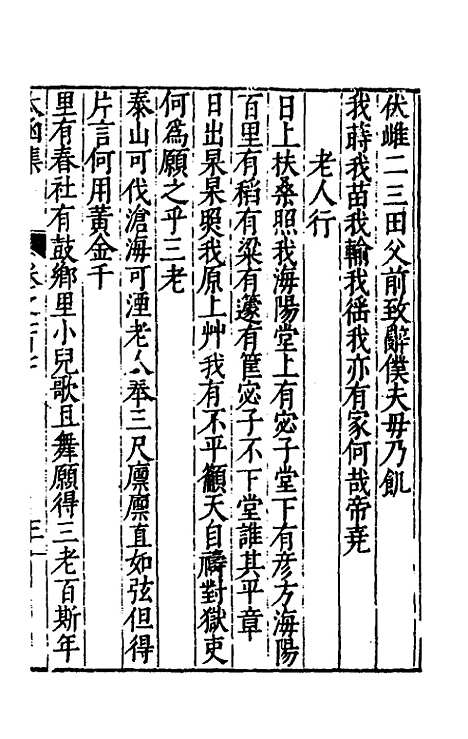 伏雌二三田父前致辭僕夫毋乃飢
我蒔我苗我輸我徭我亦有家何哉帝堯
老人行
日上扶桑照我海陽堂上有宓子堂下有彦方海陽
百里有稻有梁有籩有筐宓子不下堂誰其平章
日出杲杲照我原上艸我有不平籲天自禱對獄吏
何爲願之乎三老
泰山可伐滄海可湮老人奉三尺廪廪直如弦但得
片言何用黄金千
里有春社有鼓鄉里小兒歌且舞願得三老百斯年
太函集
卷之百七